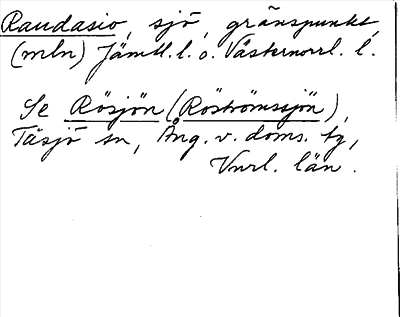 Raudasio, sjö, gränspunkt
(mln) Jämtl. l. o. Västernorrl. l.
Se Rösjön (Röströmssjön),
Tåsjö sn, Ång. v. doms. tg,
Vnrl. län.